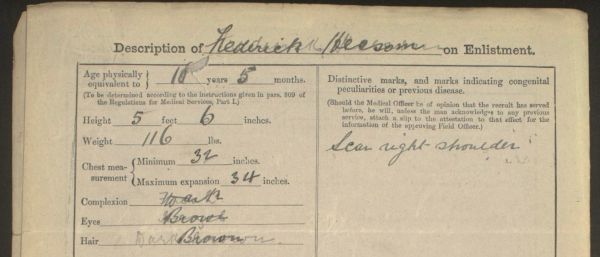 Description of Frederick Heesom on Enlistment.
Age physically equivalent to } 18 years 5 months.
(To be determined according to the instructions given in para. 309 of
the Regulations for Medical Services, Part I.)
Height 5 feet 6 inches.
Weight 116 lbs.
Chest measurement { Minimum 32 inches.
Maximum expansion 34 inches.
Complexion
Eyes Brown
Hair Dark Brown
Distinctive marks, and marks indicating congenital
peculiarities or previous disease.
(Should the Medical Officer be of opinion that the recruit has served
before, he will, unless the man acknowledges to any previous
service, attach a slip to the attestation to that effect for the
information of the approving Field Officer.)
Scar right shoulder